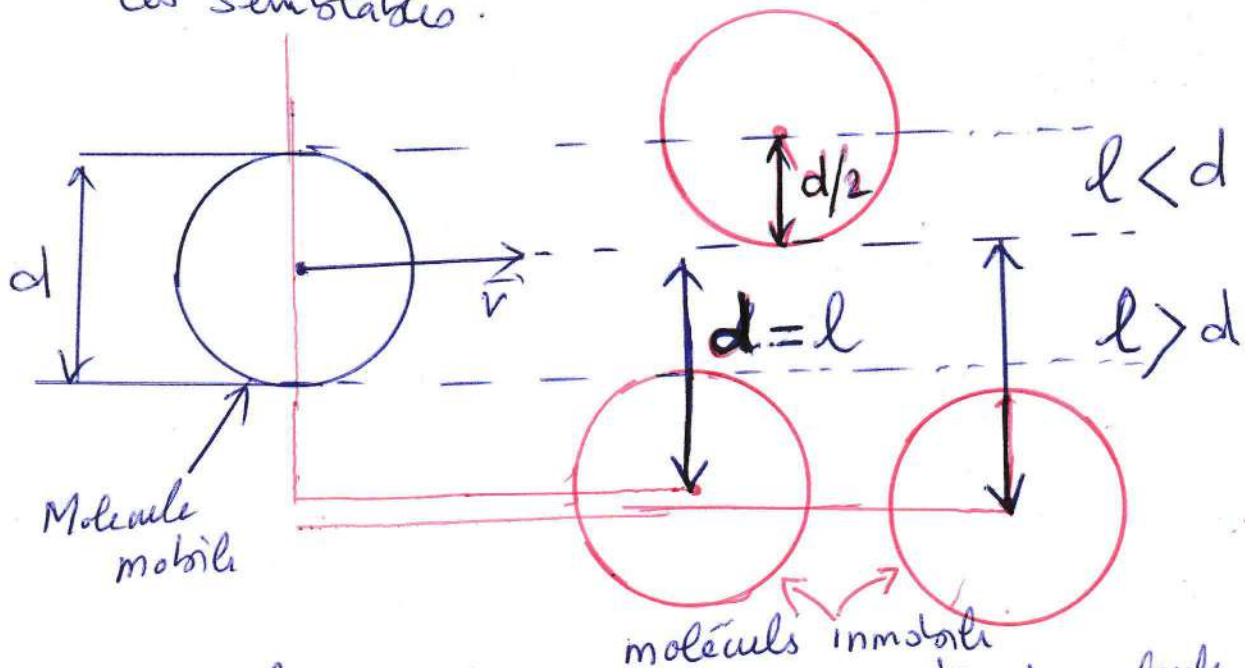 semblables.
d/2
l < d
d
v
d = l
l > d
Molecule
mobile
molécules inmobile